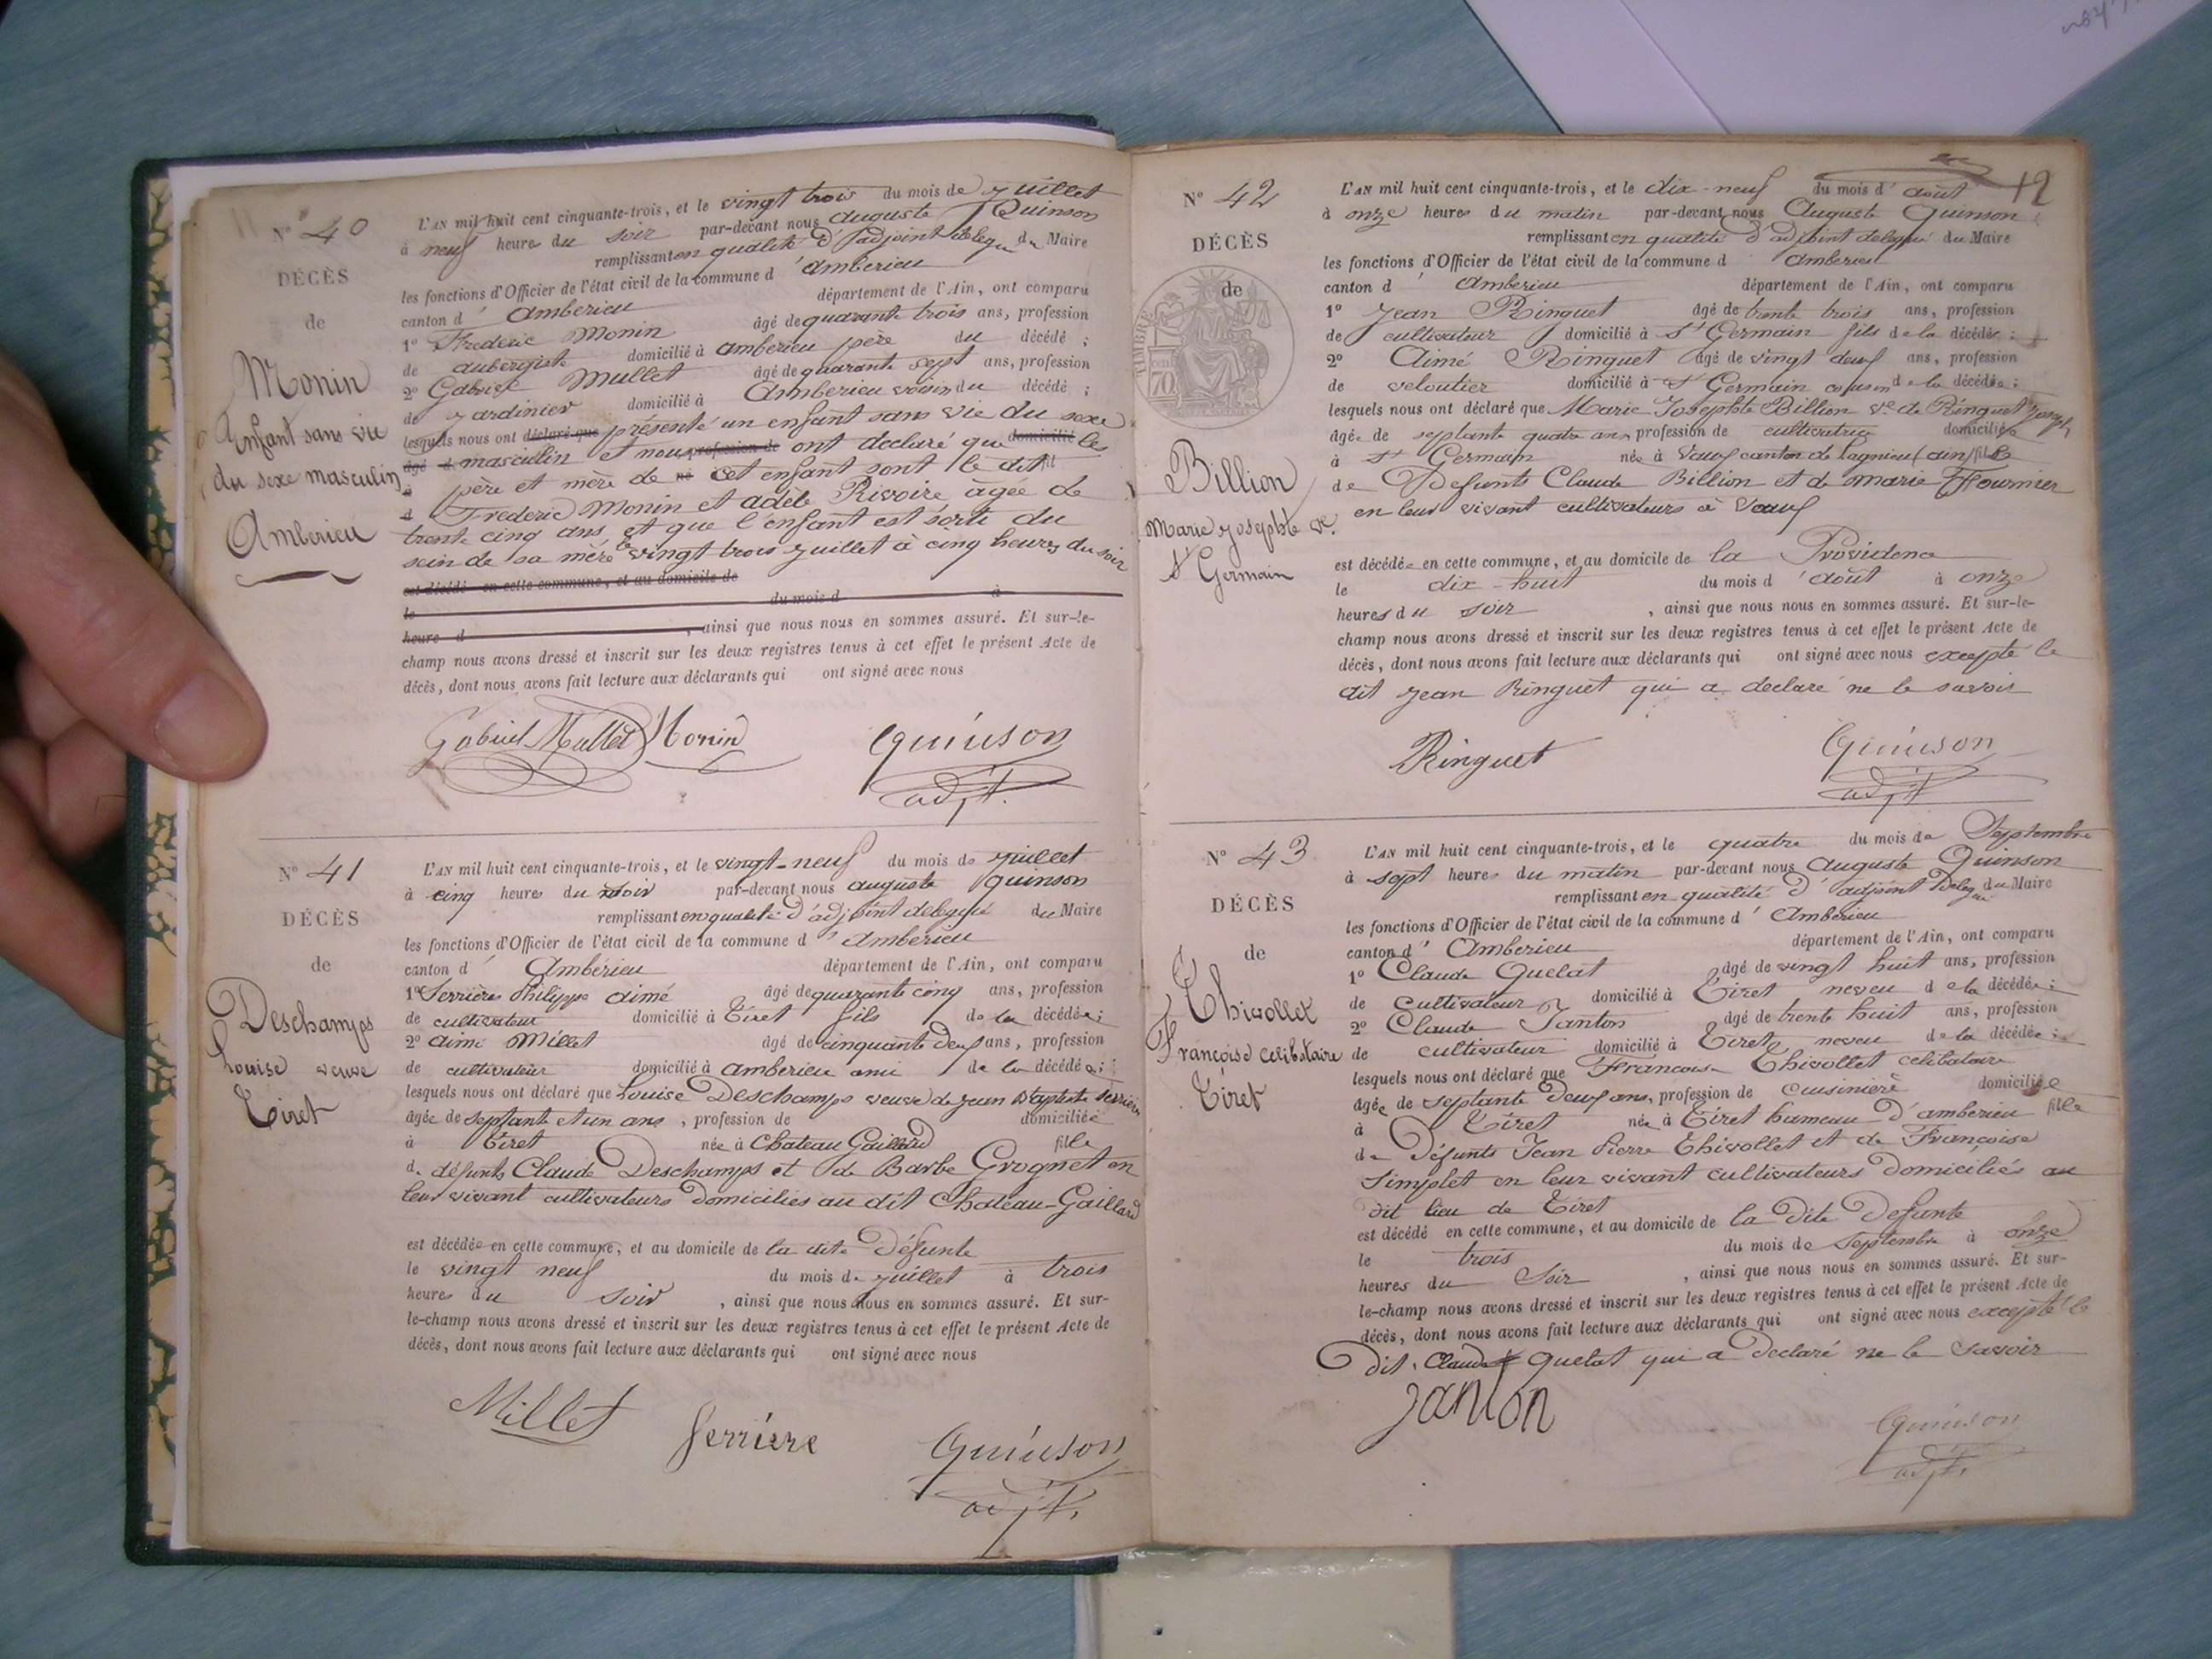 N° 40
DÉCÈS
de
Monin
Enfant sans vie
du sexe masculin
Amberieu
L'AN mil huit cent cinquante-trois, et le vingt trois du mois de Juillet
à neuf heures du soir par-devant nous Auguste Quinson
remplissant en qualité d'adjoint delegué du Maire
les fonctions d'Officier de l'état civil de la commune d'Amberieu
canton d'Amberieu département de l'Ain, ont comparu
1° Frederic Monin âgé de quarante trois ans, profession
de aubergiste domicilié à Amberieu père du décédé ;
2° Gabriel Mullet âgé de quarante sept ans, profession
de Jardinier domicilié à Amberieu voisin du décédé ;
lesquels nous ont déclaré que présenté un enfant sans vie du sexe
masculin et nous profession de ont declaré que domicilié les
père et mère de né cet enfant sont le dit
Frederic Monin et adèle Rivoire âgée de
trente cinq ans et que l'enfant est sorti du
sein de sa mère le vingt trois Juillet à cinq heures du soir
est décédé en cette commune, et au domicile de
le du mois d à
heure d , ainsi que nous nous en sommes assuré. Et sur-le-
champ nous avons dressé et inscrit sur les deux registres tenus à cet effet le présent Acte de
décès, dont nous avons fait lecture aux déclarants qui ont signé avec nous
Gabriel Mullet Monin Quinson
adjt.
N° 41
DÉCÈS
de
Deschamps
Louise veuve
Tiret
L'AN mil huit cent cinquante-trois, et le vingt-neuf du mois de Juillet
à cinq heures du soir par-devant nous Auguste Quinson
remplissant en qualité d'adjoint delegué du Maire
les fonctions d'Officier de l'état civil de la commune d'Amberieu
canton d'Ambérieu département de l'Ain, ont comparu
1° Serrière Philippe aimé âgé de quarante cinq ans, profession
de cultivateur domicilié à Tiret fils de la décédée ;
2° aimé Millet âgé de cinquante deux ans, profession
de cultivateur domicilié à amberieu ami de la décédée ;
lesquels nous ont déclaré que Louise Deschamps veuve de Jean Baptiste Serrière
âgée de septante et un ans, profession de domiciliée
à Tiret née à Chateau Gaillard fille
de défunts Claude Deschamps et de Barbe Grognet en
leur vivant cultivateurs domiciliés au dit Chateau-Gaillard
est décédée en cette commune, et au domicile de la dite défunte
le vingt neuf du mois de Juillet à trois
heures du soir , ainsi que nous nous en sommes assuré. Et sur-
le-champ nous avons dressé et inscrit sur les deux registres tenus à cet effet le présent Acte de
décès, dont nous avons fait lecture aux déclarants qui ont signé avec nous
Millet Serriere Quinson
adjt.
12
N° 42
DÉCÈS
de
TIMBRE
70
Billion
Marie Josephte ve.
St Germain
L'AN mil huit cent cinquante-trois, et le dix-neuf du mois d'août
à onze heures du matin par-devant nous Auguste Quinson
remplissant en qualité d'adjoint delegué du Maire
les fonctions d'Officier de l'état civil de la commune d'Amberieu
canton d'Amberieu département de l'Ain, ont comparu
1° Jean Ringuet âgé de trente trois ans, profession
de cultivateur domicilié à St Germain fils de la décédée ;
2° Aimé Ringuet âgé de vingt deux ans, profession
de veloutier domicilié à St Germain cousin de la décédée ;
lesquels nous ont déclaré que Marie Josephte Billion ve de Ringuet Joseph
âgée de septante quatre ans profession de cultivatrice domiciliée
à St Germain née à Vaux canton de lagnieu (ain) fille
de Defunts Claude Billion et de marie Fournier
en leur vivant cultivateurs à Vaux
est décédée en cette commune, et au domicile de la Providence
le dix-huit du mois d'août à onze
heures du soir , ainsi que nous nous en sommes assuré. Et sur-le-
champ nous avons dressé et inscrit sur les deux registres tenus à cet effet le présent Acte de
décès, dont nous avons fait lecture aux déclarants qui ont signé avec nous excepté le
dit Jean Ringuet qui a declaré ne le savoir
Ringuet Quinson
adjt
N° 43
DÉCÈS
de
Thivollet
Françoise celibataire
Tiret
L'AN mil huit cent cinquante-trois, et le quatre du mois de Septembre
à sept heures du matin par-devant nous Auguste Quinson
remplissant en qualité d'adjoint delegué du Maire
les fonctions d'Officier de l'état civil de la commune d'Amberieu
canton d'Amberieu département de l'Ain, ont comparu
1° Claude Quelat âgé de vingt huit ans, profession
de cultivateur domicilié à Tiret neveu de la décédée ;
2° Claude Janton âgé de trente huit ans, profession
de cultivateur domicilié à Tiret neveu de la décédée ;
lesquels nous ont déclaré que Francoise Thivollet celibataire
âgée de septante deux ans, profession de cuisinière domiciliée
à Tiret née à Tiret hameau d'amberieu fille
de Défunts Jean Pierre Thivollet et de Françoise
Simplet en leur vivant cultivateurs domiciliés au
dit lieu de Tiret
est décédé en cette commune, et au domicile de la dite Defunte
le trois du mois de Septembre à onze
heures du Soir , ainsi que nous nous en sommes assuré. Et sur-
le-champ nous avons dressé et inscrit sur les deux registres tenus à cet effet le présent Acte de
décès, dont nous avons fait lecture aux déclarants qui ont signé avec nous excepté le
Dit Claude Quelat qui a declaré ne le Savoir
Janton Quinson
adjt.